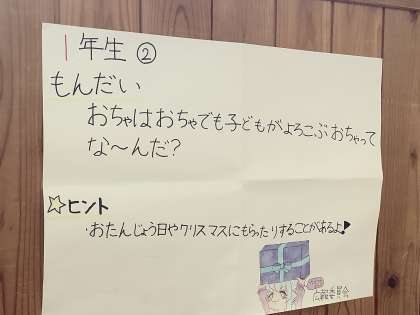 1年生 ②
もんだい
おちゃはおちゃでも子どもがよろこぶおちゃって
な〜んだ?
☆ヒント
・おたんじょう日やクリスマスにもらったりすることがあるよ!
広報委員会